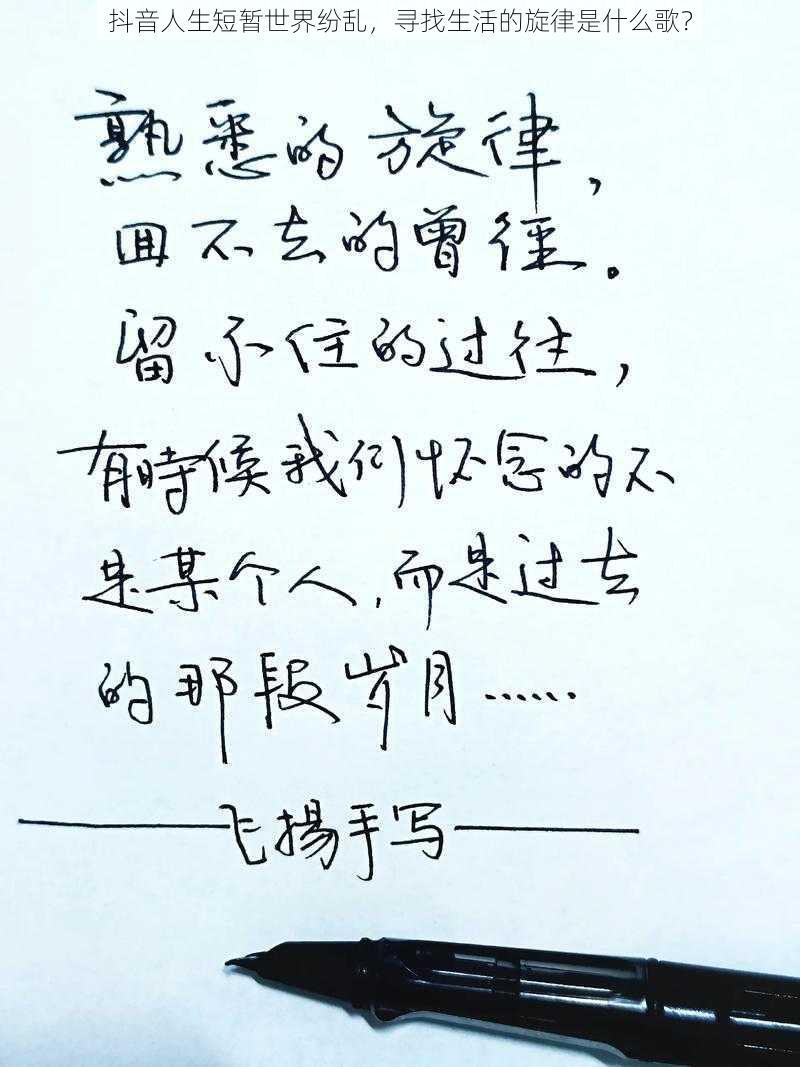 抖音人生短暂世界纷乱，寻找生活的旋律是什么歌？
熟悉的旋律，
回不去的曾经。
留不住的过往，
有時候我们怀念的不
是某个人，而是过去
的那段岁月……
——飞揚手写——